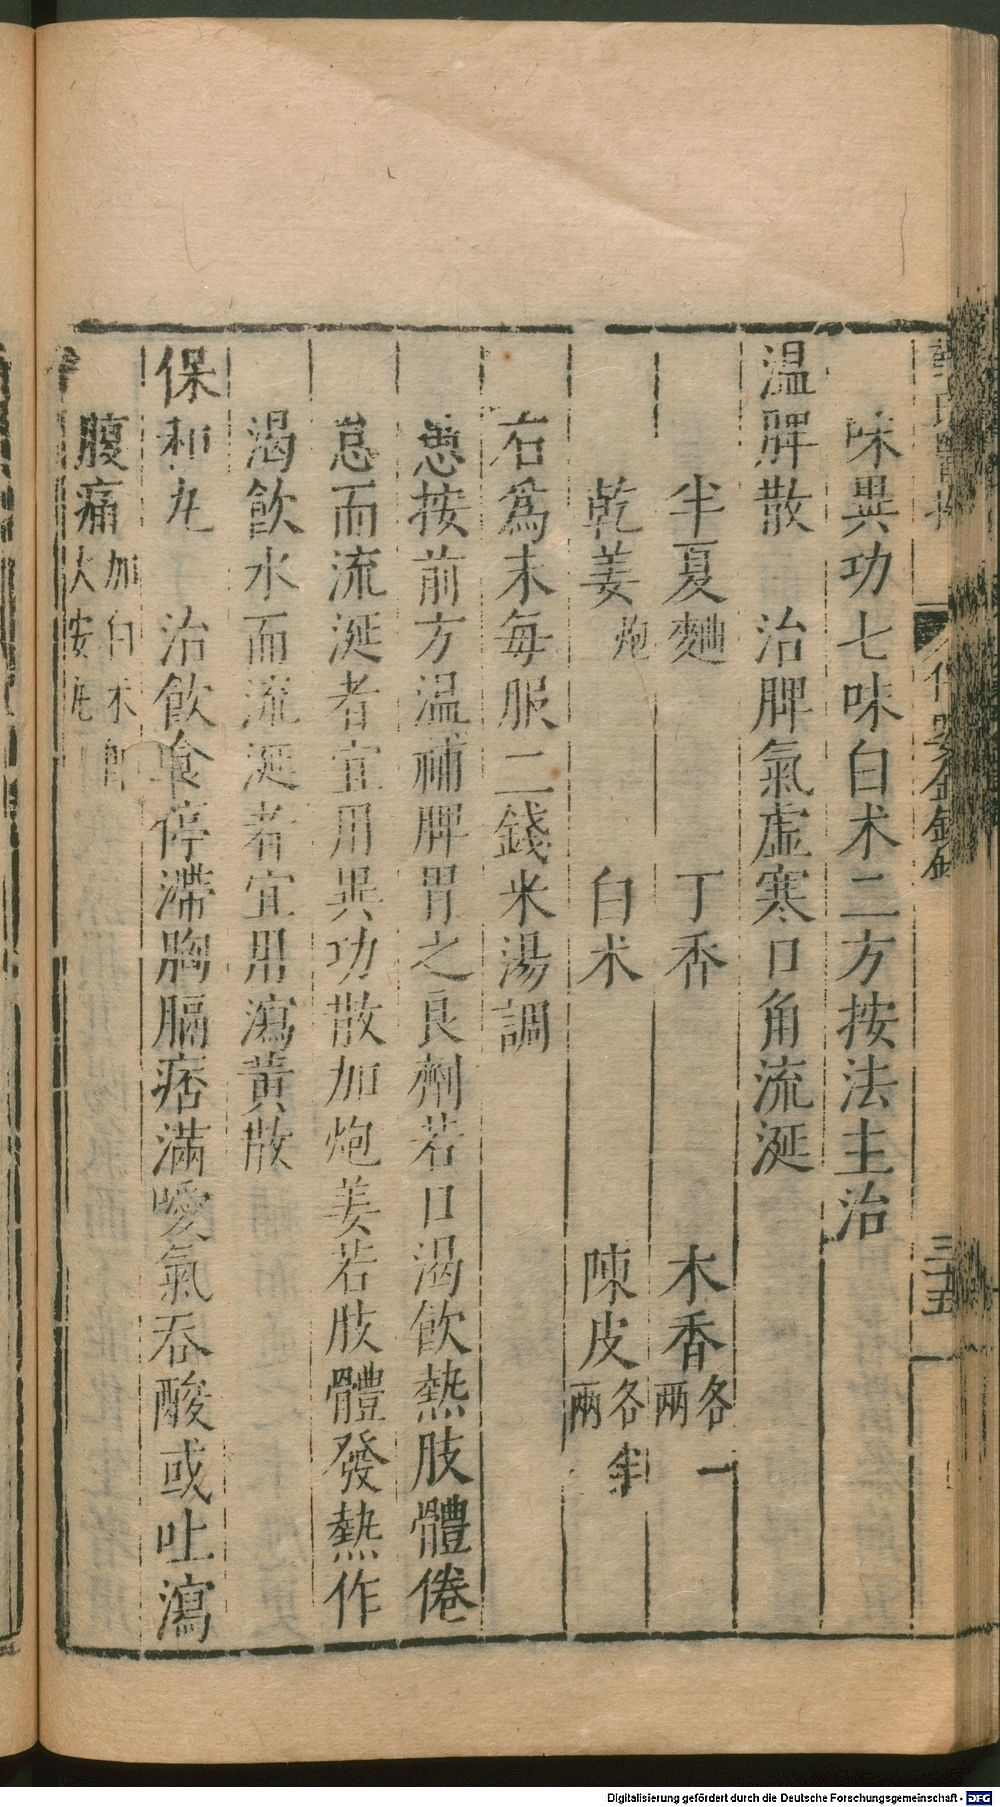 味異功七味白术二方按法主治
温脾散　治脾氣虛寒口角流涎
半夏麯　丁香　木香各一兩
乾姜炮　白术　陳皮各半兩
右爲末每服二錢米湯調
愚按前方温補脾胃之良劑若口渴飲熱肢體倦
怠而流涎者宜用異功散加炮姜若肢體發熱作
渴飲水而流涎者宜用瀉黄散
保和丸　治飲食停滯胸膈痞滿噯氣吞酸或吐瀉
腹痛加白术即大安丸
三十五
Digitalisierung gefördert durch die Deutsche Forschungsgemeinschaft - DFG